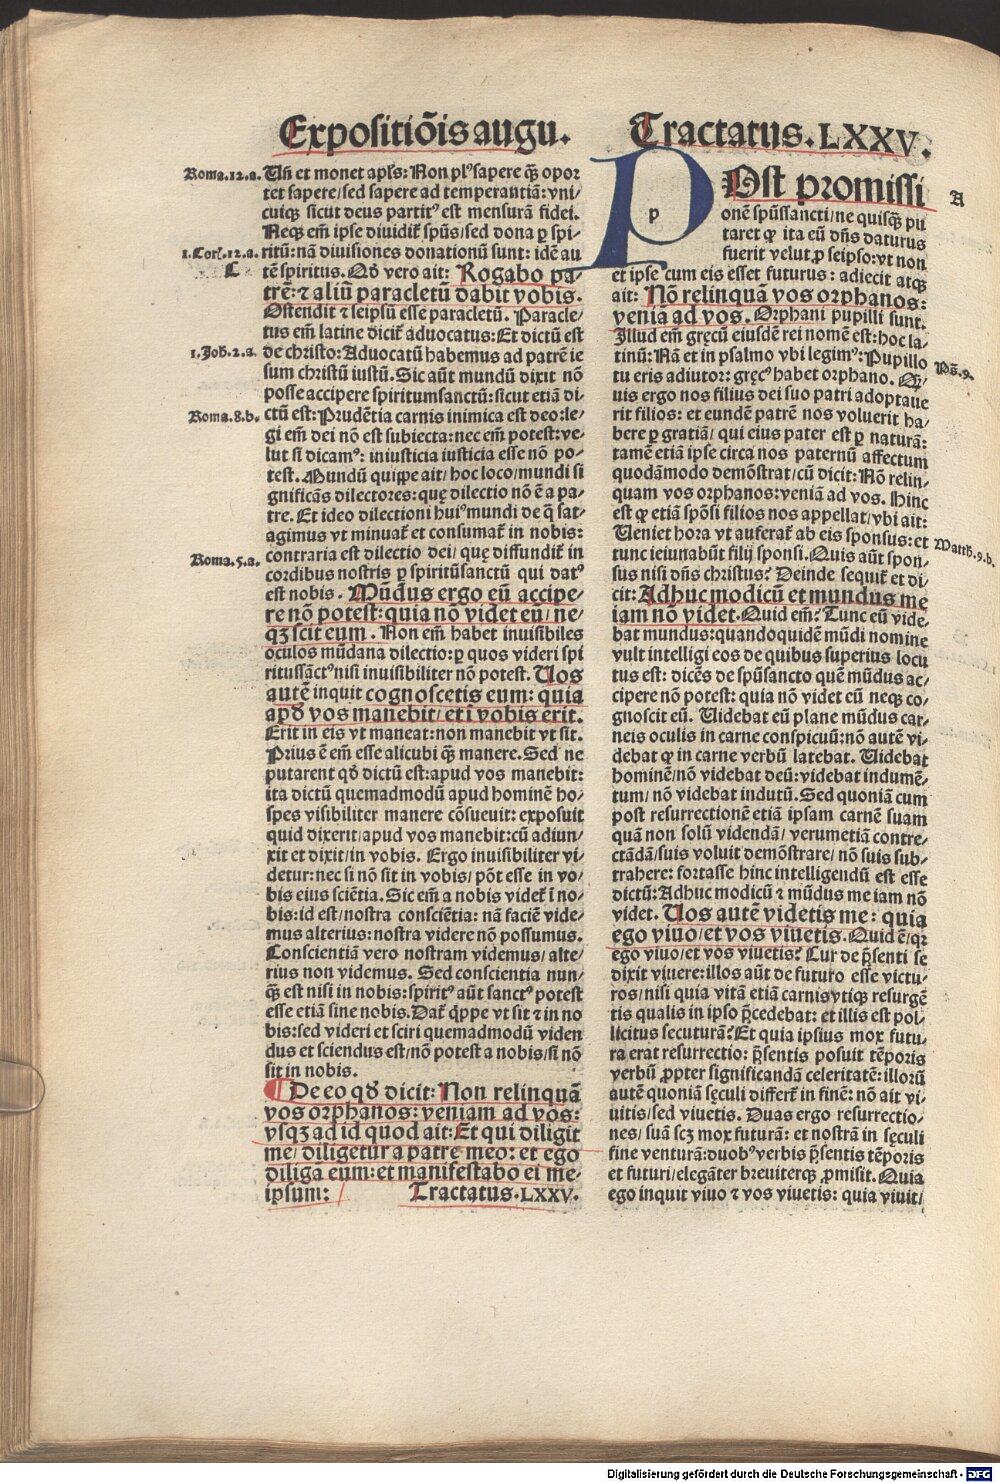 Expositiõis augu.
Roma.12.a. Uñ et monet apľs: Non plꝰ sapere q̃ȝ opor
tet sapere/ sed sapere ad temperantiã: vni/
cuiqȝ sicut deus partitꝰ est mensurã fidei.
Neqȝ em̃ ipse diuidit̃ spũs/ sed dona ꝑ spi/
1.Corĩ.12.a. ritũ: nã diuisiones donationũ sunt: idẽ au
C tẽ spiritus. Qď vero ait: Rogabo pa/
trẽ: ⁊ aliũ paracletũ dabit vobis.
Ostendit ⁊ seipsũ esse paracletũ. Paracle/
tus em̃ latine dicit̃ aduocatus: Et dictũ est
1.Joh.2.a. de christo: Aduocatũ habemus ad patrẽ ie
sum christũ iustũ. Sic aũt mundũ dixit nõ
posse accipere spiritumsanctũ: sicut etiã di/
Roma.8.b. ctũ est: Prudẽtia carnis inimica est deo: le/
gi em̃ dei nõ est subiecta: nec em̃ potest: ve/
lut si dicamꝰ: iniusticia iusticia esse nõ po/
test. Mundũ quippe ait/ hoc loco/ mundi si
gnificãs dilectores: quę dilectio nõ ẽ a pa/
tre. Et ideo dilectioni huiꝰ mundi de q̃ sat/
agimus vt minuat̃ et consumat̃ in nobis:
Roma.5.a. contraria est dilectio dei/ quę diffundit̃ in
cordibus nostris ꝑ spiritũsanctũ qui datꝰ
est nobis. Mũdus ergo eũ accipe/
re nõ potest: quia nõ videt eũ/ ne/
qȝ scit eum. Non em̃ habet inuisibiles
oculos mũdana dilectio: ꝑ quos videri spi
ritussãctꝰ nisi inuisibiliter nõ potest. Uos
autẽ inquit cognoscetis eum: quia
apď vos manebit/ et ĩ vobis erit.
Erit in eis vt maneat: non manebit vt sit.
Prius ẽ em̃ esse alicubi q̃ȝ manere. Sed ne
putarent qď dictũ est: apud vos manebit:
ita dictũ quemadmodũ apud hominẽ ho/
spes visibiliter manere cõsueuit: exposuit
quid dixerit/ apud vos manebit: cũ adiun/
xit et dixit/ in vobis. Ergo inuisibiliter vi/
detur: nec si nõ sit in vobis/ põt esse in vo/
bis eius sciẽtia. Sic em̃ a nobis videt̃ ĩ no/
bis: id est/ nostra consciẽtia: nã faciẽ vide/
mus alterius: nostra videre nõ possumus.
Conscientiã vero nostram videmus/ alte/
rius non videmus. Sed conscientia nun/
q̃ȝ est nisi in nobis: spiritꝰ aũt sanctꝰ potest
esse etiã sine nobis. Dat̃ q̃ppe vt sit ⁊ in no
bis: sed videri et sciri quemadmodũ viden
dus et sciendus est/ nõ potest a nobis/ si nõ
sit in nobis.
¶ De eo qď dicit: Non relinquã
vos orphanos: veniam ad vos:
vsqȝ ad id quod ait: Et qui diligit
me/ diligetur a patre meo: et ego
diligã eum: et manifestabo ei me/
ipsum: Tractatus.LXXV.
Tractatus.LXXV.
POst promissi A
p
onẽ spũssancti/ ne quisq̃ȝ pu
taret ꝙ ita eũ dñs daturus
fuerit velut ꝓ seipso: vt non
et ipse cum eis esset futurus: adiecit atqȝ
ait: Nõ relinquã vos orphanos:
veniã ad vos. Orphani pupilli sunt.
Illud em̃ gręcũ eiusdẽ rei nomẽ est: hoc la/
tinũ: Nã et in psalmo vbi legimꝰ: Pupillo Pš.9.
tu eris adiutor: gręcꝰ habet orphano. Q̃/
uis ergo nos filius dei suo patri adoptaue
rit filios: et eundẽ patrẽ nos voluerit ha/
bere ꝑ gratiã/ qui eius pater est ꝑ naturã:
tamẽ etiã ipse circa nos paternũ affectum
quodãmodo demõstrat/ cũ dicit: Nõ relin/
quam vos orphanos: veniã ad vos. Hinc
est ꝙ etiã spõsi filios nos appellat/ vbi ait:
Ueniet hora vt auferat̃ ab eis sponsus: et Matth.9.b.
tunc ieiunabũt filij sponsi. Quis aũt spon/
sus nisi dñs christus? Deinde sequit̃ et di/
cit: Adhuc modicũ et mundus me
iam nõ videt. Quid em̃? Tunc eũ vide/
bat mundus: quandoquidẽ mũdi nomine
vult intelligi eos de quibus superius locu
tus est: dicẽs de spũsancto quẽ mũdus ac/
cipere nõ potest: quia nõ videt eũ neqȝ co/
gnoscit eũ. Uidebat eũ plane mũdus car/
neis oculis in carne conspicuũ: nõ autẽ vi/
debat ꝙ in carne verbũ latebat. Uidebat
hominẽ/ nõ videbat deũ: videbat indumẽ/
tum/ nõ videbat indutũ. Sed quoniã cum
post resurrectionẽ etiã ipsam carnẽ suam
quã non solũ videndã/ verumetiã contre/
ctãdã/ suis voluit demõstrare/ nõ suis sub/
trahere: fortasse hinc intelligendũ est esse
dictũ: Adhuc modicũ ⁊ mũdus me iam nõ
videt. Uos autẽ videtis me: quia
ego viuo/ et vos viuetis. Quid ẽ/ qr
ego viuo/ et vos viuetis? Cur de p̃senti se
dixit viuere: illos aũt de futuro esse victu/
ros/ nisi quia vitã etiã carnis vtiqȝ resurgẽ
tis qualis in ipso p̃cedebat: et illis est pol/
licitus secuturã? Et quia ipsius mox futu/
ra erat resurrectio: p̃sentis posuit tẽporis
verbũ ꝓpter significandã celeritatẽ: illorũ
autẽ quoniã sęculi differt̃ in finẽ: nõ ait vi/
uitis/ sed viuetis. Duas ergo resurrectio/
nes/ suã scȝ mox futurã: et nostrã in sęculi
fine venturã: duobꝰ verbis p̃sentis tẽporis
et futuri/ elegãter breuiterqȝ ꝓmisit. Quia
ego inquit viuo ⁊ vos viuetis: quia viuit/
Digitalisierung gefördert durch die Deutsche Forschungsgemeinschaft - DFG